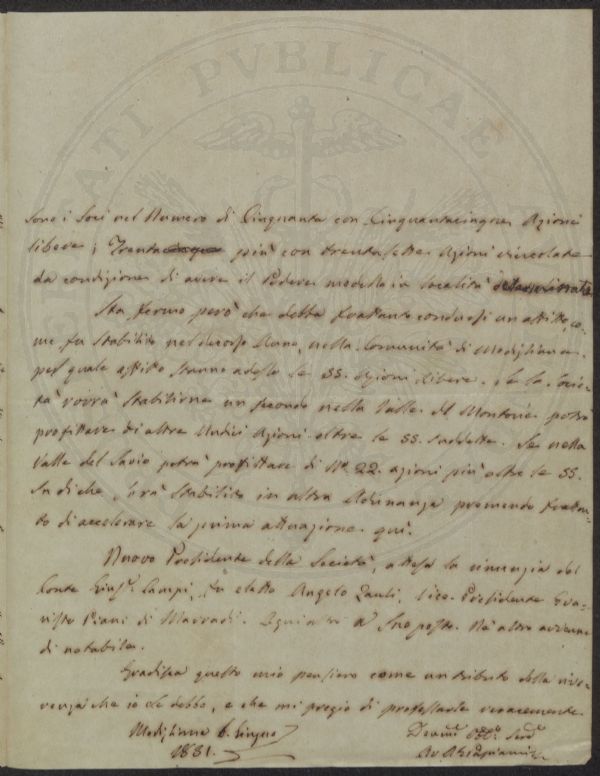 sono i Soci nel Numero di Cinquanta con Cinquantacinque Azioni
libere; Trenta più con trentasette Azioni vincolate
da condizione di avere il Podere modello in località determinata
Sta fermo però che debba frattanto condursi un affitto co-
me fu stabilito nel decorso Anno, nella Comunità di Modigliana
pel quale affitto stanno adesso le 55. Azioni libere. Se la Socie-
tà vorrà stabilirne un secondo nella Valle del Montone potrà
profittare di altre Undici Azioni oltre le 55 suddette. Se nella
Valle del Savio potrà profittare di No. 22. azioni più oltre le 55.
Su di che sarà stabilito in altra Adunanza premendo frattan-
to di accelerare la prima attuazione qui.
Nuovo Presidente della Società, attesa la rinunzia del
Conte Campi, fu eletto Angelo Zauli, Vice-Presidente Eva-
risto Piani di Marradi. a Suo posto. Né altro avvenne
di notabile.
Gradisca questo mio pensiero come un tributo della rive-
renza che io Le debbo, e che mi pregio di professarle veracemente.
Modigliana 6. Giugno
1851.